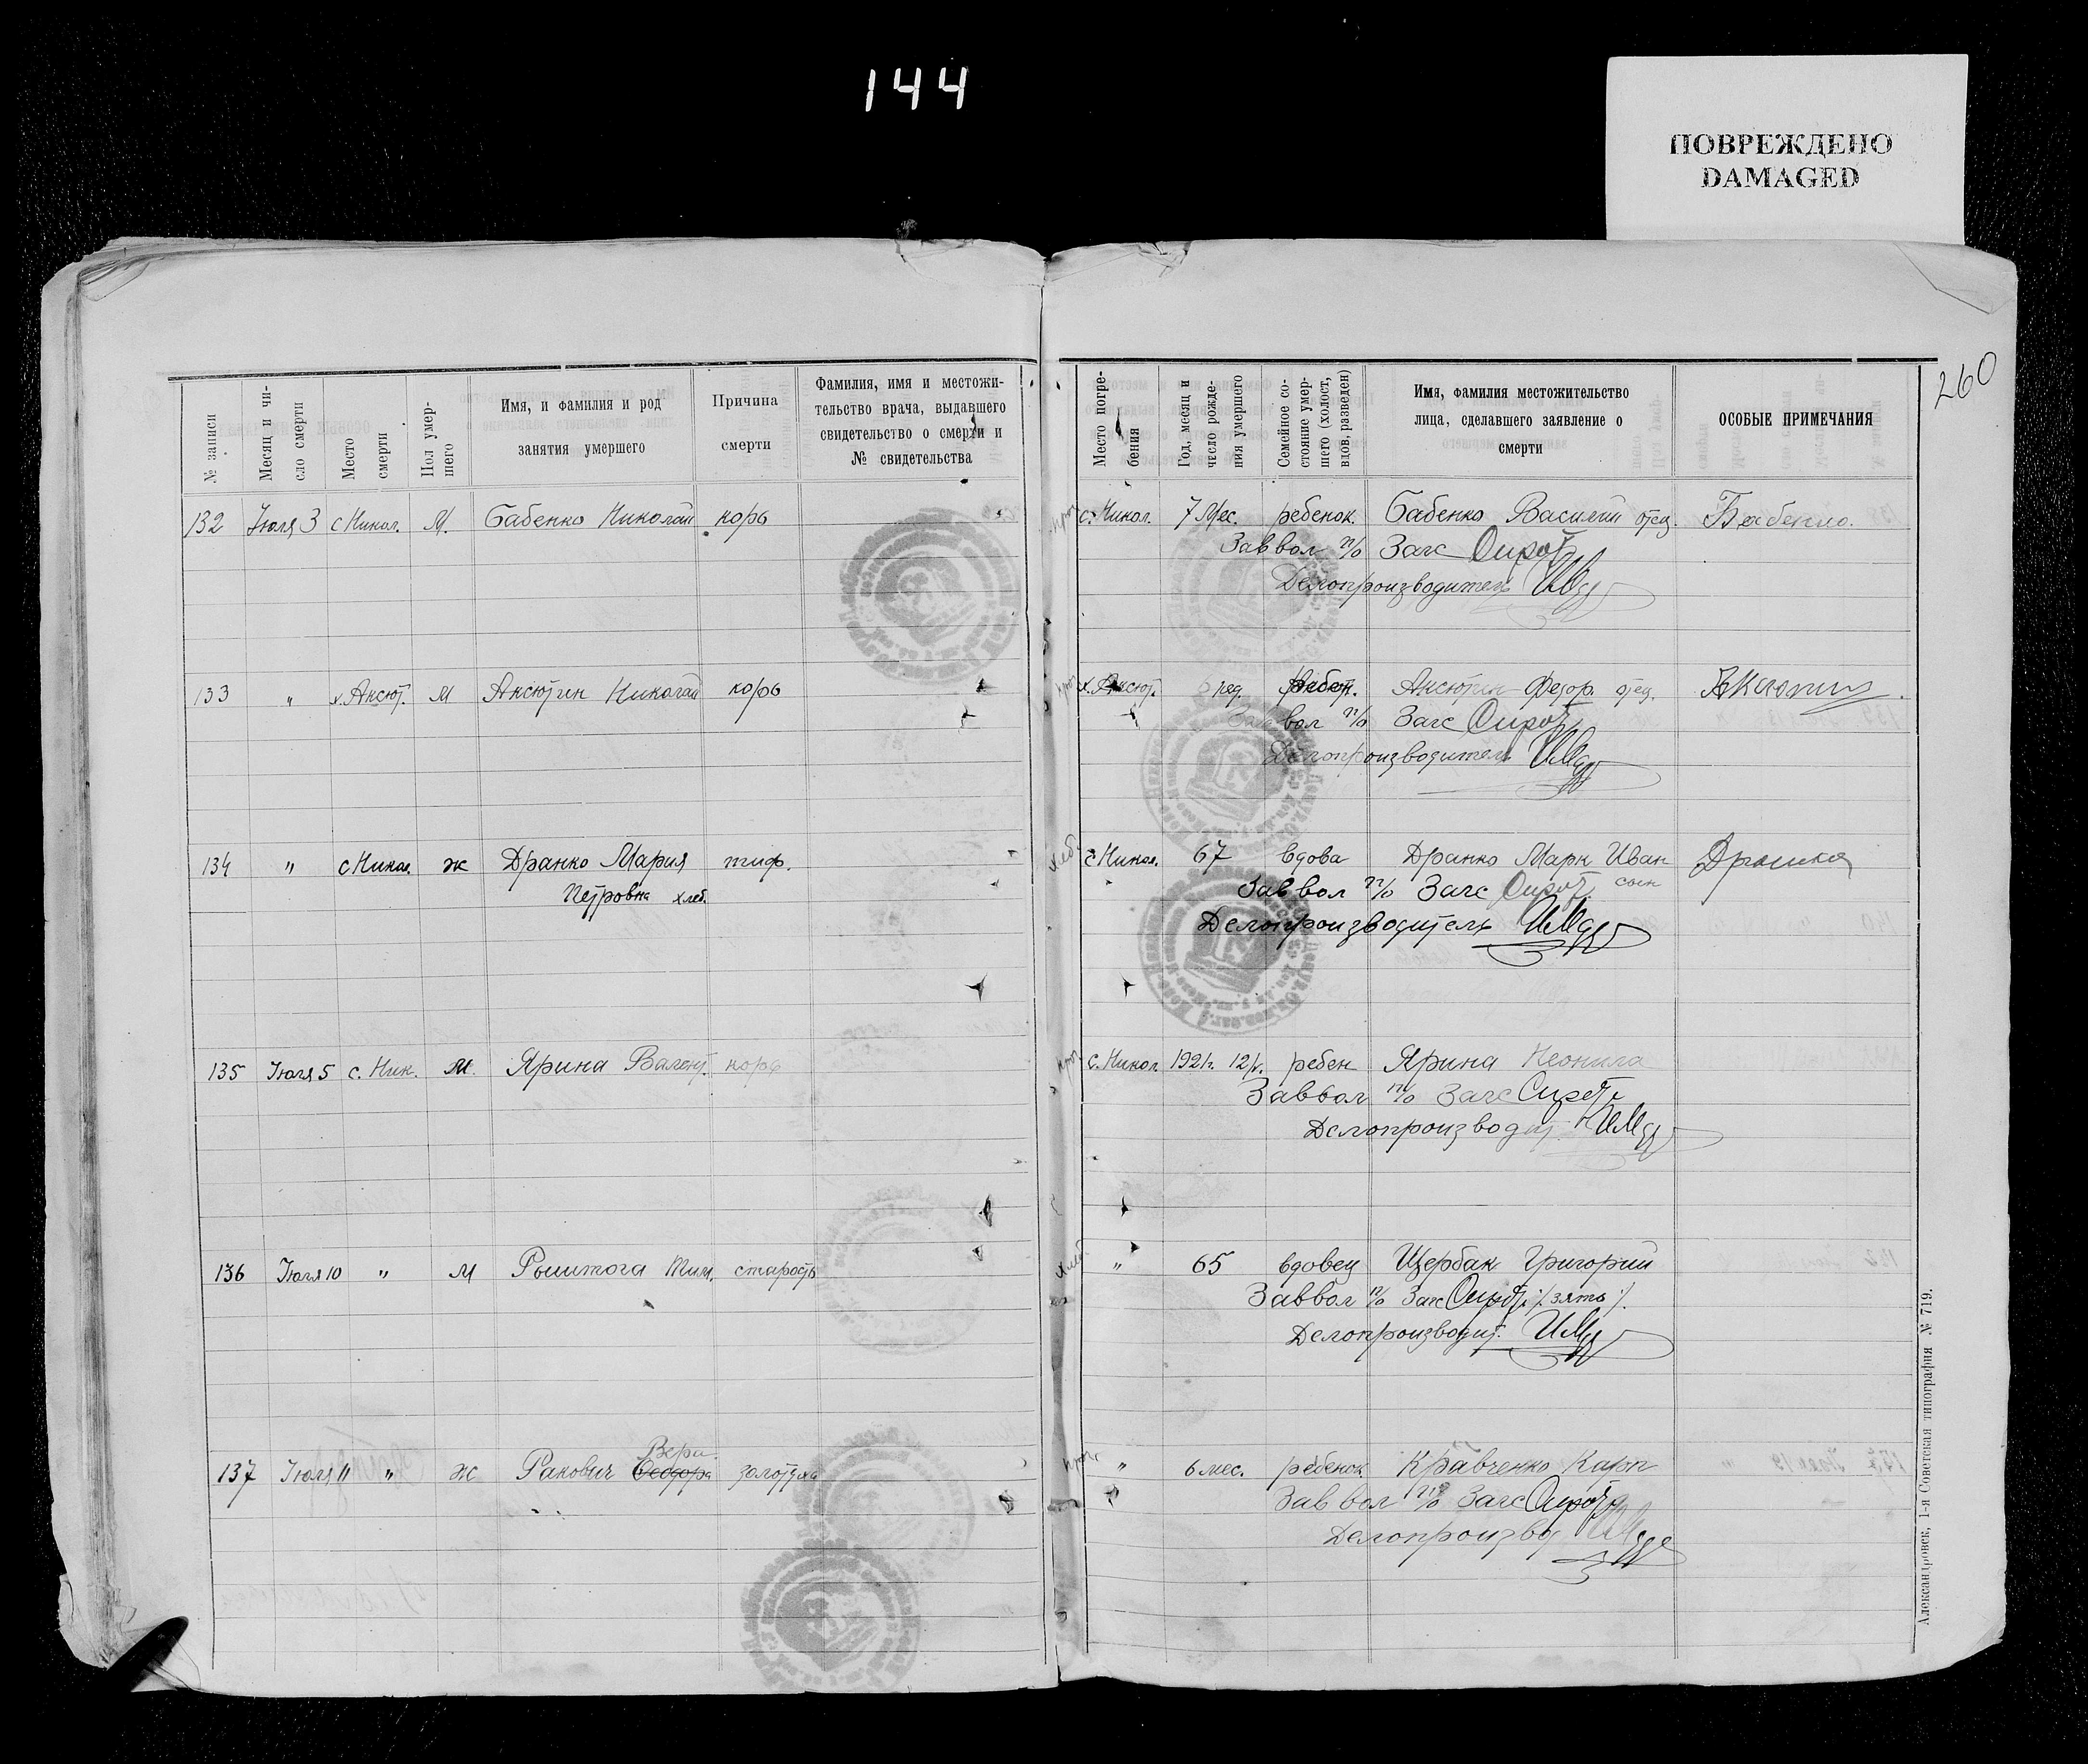 144
ПОВРЕЖДЕНО
DAMAGED
260
№ записи
Месяц и чи-
сло смерти
Место
смерти
Пол умер-
шего
Имя, и фамилия и род
занятия умершего
Причина
смерти
Фамилия, имя и местожи-
тельство врача, выдавшего
свидетельство о смерти и
№ свидетельства
Место погре-
бения
Год, месяц и
число рожде-
ния умершего
Семейное со-
стояние умер-
шего (холост,
вдов, разведен)
Имя, фамилия местожительство
лица, сделавшего заявление о
смерти
ОСОБЫЕ ПРИМЕЧАНИЯ
132 Июля 3 с Никол. М. Бабенко Николай корь с. Никол. 7 Мес. ребенок. Бабенко Василий отец. Бабенко.
Зав вол п/о Загс Сирот
Делопроизводитель
133 " х. Аксют. М Аксютин Николай корь х. Аксют. ребен. Аксютин Федор. отец.
Зав вол п/о Загс Сирот
Делопроизводитель
134 " с Никол. ж Дранко Мария тиф. с Никол. 67 вдова Дранко Марк Иван Дранко
Петровна хлеб. Зав вол п/о Загс Сирот сын
Делопроизводитель
135 Июля 5 с. Ник. М. Ярина Валент. корь с. Никол. 1921 г. 12/ ребен Ярина Неонила
Зав вол п/о Загс Сирот
Делопроизводит
136 Июля 10 " М Тим. старость " 65 вдовец Щербак Григорий
Зав вол п/о Загс Сирот /: зять :/
Делопроизводит.
Вера
137 Июля 11 " ж Ракович Феодора золотуха " 6 мес. ребенок Кравченко Карп
Зав вол п/о Загс Сирот
Делопроизвод
Александровск, 1-я Советская типография № 719.